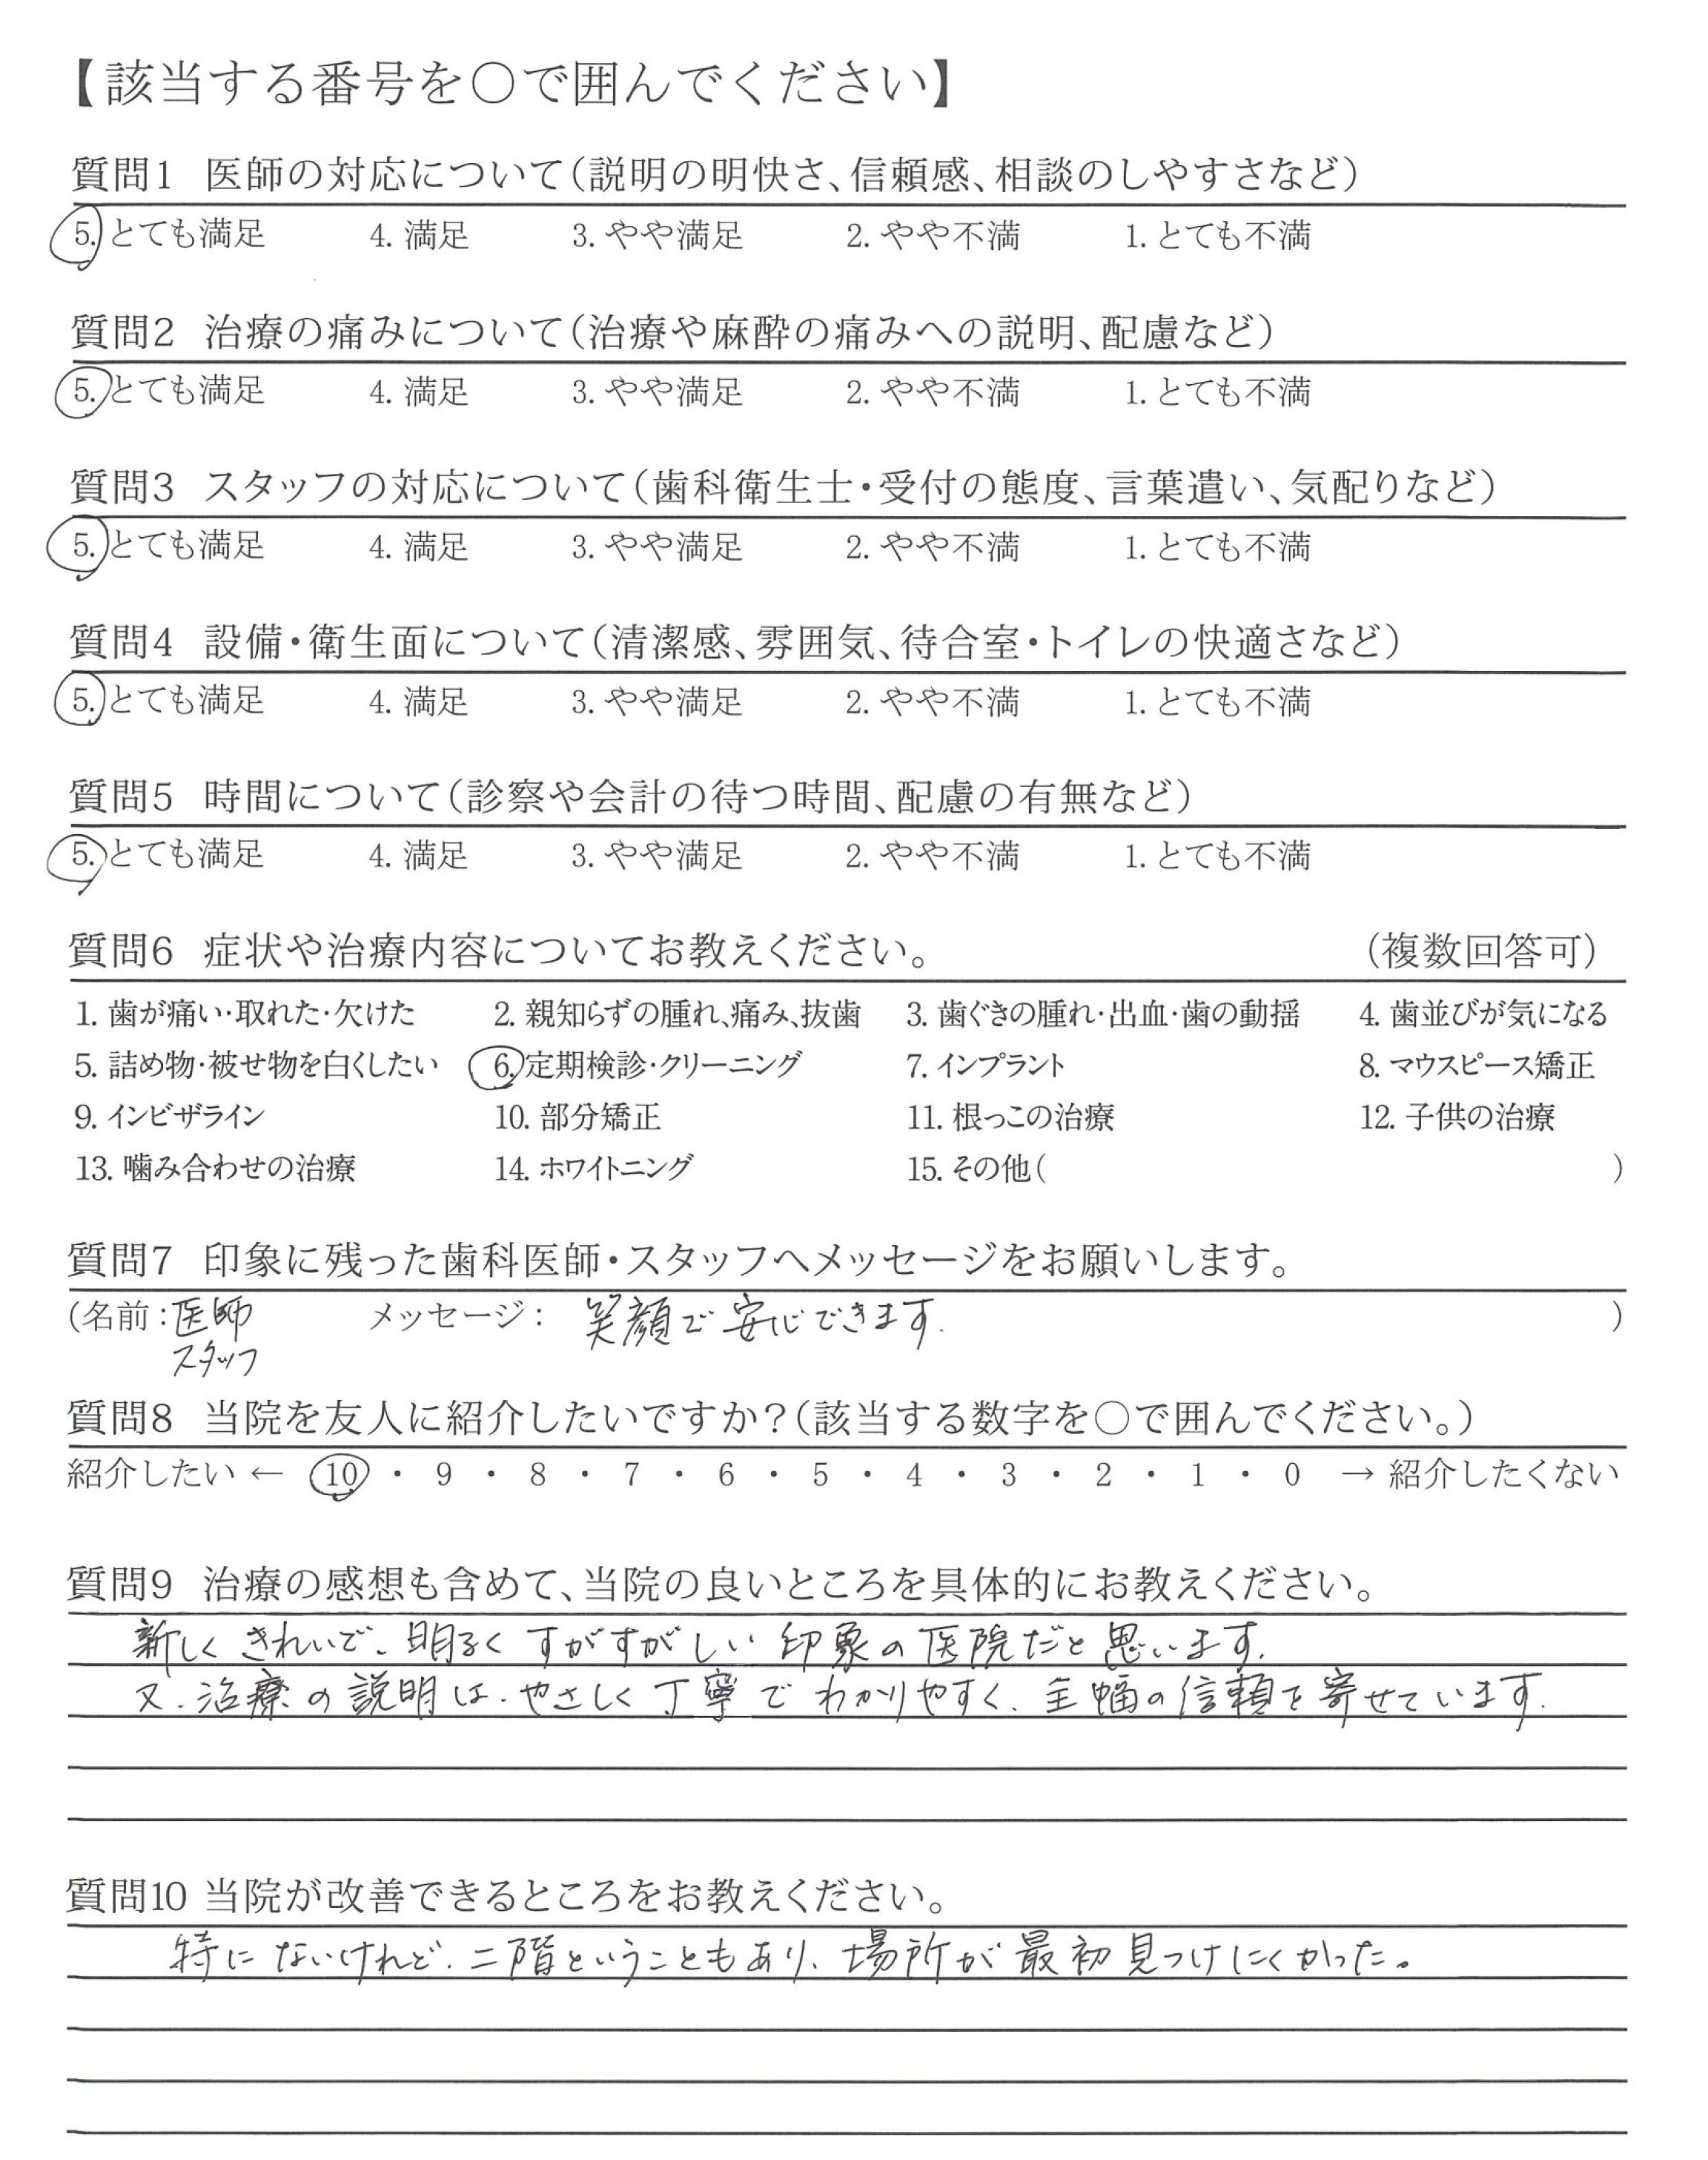 【該当する番号を○で囲んでください】
質問1 医師の対応について(説明の明快さ、信頼感、相談のしやすさなど)
5. とても満足 4. 満足 3. やや満足 2. やや不満 1. とても不満
質問2 治療の痛みについて(治療や麻酔の痛みへの説明、配慮など)
5. とても満足 4. 満足 3. やや満足 2. やや不満 1. とても不満
質問3 スタッフの対応について(歯科衛生士・受付の態度、言葉遣い、気配りなど)
5. とても満足 4. 満足 3. やや満足 2. やや不満 1. とても不満
質問4 設備・衛生面について(清潔感、雰囲気、待合室・トイレの快適さなど)
5. とても満足 4. 満足 3. やや満足 2. やや不満 1. とても不満
質問5 時間について(診察や会計の待つ時間、配慮の有無など)
5. とても満足 4. 満足 3. やや満足 2. やや不満 1. とても不満
質問6 症状や治療内容についてお教えください。 (複数回答可)
1. 歯が痛い・取れた・欠けた 2. 親知らずの腫れ、痛み、抜歯 3. 歯ぐきの腫れ・出血・歯の動揺 4. 歯並びが気になる
5. 詰め物・被せ物を白くしたい 6. 定期検診・クリーニング 7. インプラント 8. マウスピース矯正
9. インビザライン 10. 部分矯正 11. 根っこの治療 12. 子供の治療
13. 噛み合わせの治療 14. ホワイトニング 15. その他( )
質問7 印象に残った歯科医師・スタッフへメッセージをお願いします。
(名前:医師 メッセージ: 笑顔で安心できます. )
スタッフ
質問8 当院を友人に紹介したいですか?(該当する数字を○で囲んでください。)
紹介したい ← 10 ・ 9 ・ 8 ・ 7 ・ 6 ・ 5 ・ 4 ・ 3 ・ 2 ・ 1 ・ 0 → 紹介したくない
質問9 治療の感想も含めて、当院の良いところを具体的にお教えください。
新しくきれいで、明るくすがすがしい印象の医院だと思います.
又、治療の説明は、やさしく丁寧でわかりやすく、全幅の信頼を寄せています.
質問10 当院が改善できるところをお教えください。
特にないけれど、二階ということもあり、場所が最初見つけにくかった。